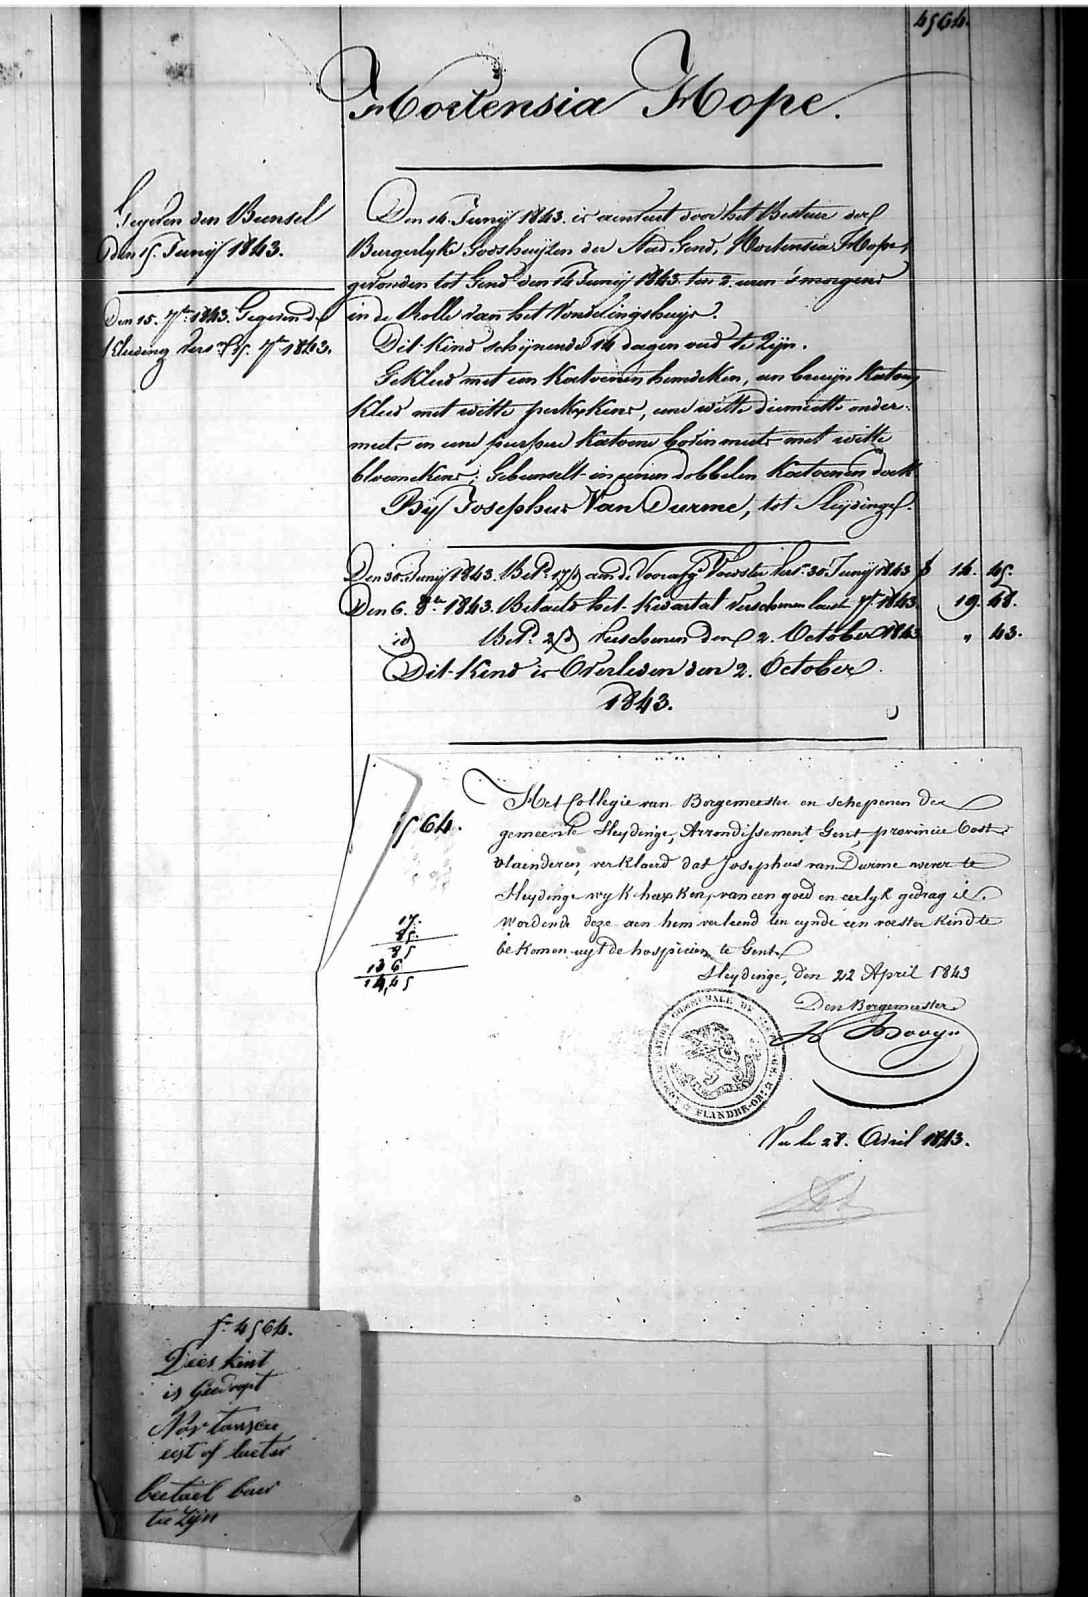 4564.
Hortensia Hope.
Gegeven den Bunsel
den 15. Junij 1843.
Den 15. 7br 1843. Gegeven de
Kleeding vers. 7br 1843.
Den 14. Junij 1843. is aenveert door het Bestuer der
Burgerlyke Godshuijzen der Stad Gend, Hortensia Hope,
gevonden tot Gend den 14 Junij 1843. ten 2. uren 's morgens
in de Rolle van het Vondelingshuijs.
Dit Kind schijnende 14 dagen oud te Zijn.
Gekleed met een Katoenen hemdeken, een bruijn Katoen
Kleed met witte perkxkens, eene witte diemette onder-
meets en eene purpere Katoene bovenmeets met witte
bloemekens; Gebunselt in eenen dobbelen Katoenen doek
Bij Josephus Van Durme, tot Sleijdinge.
Den 30. Junij 1843. Bet. 17/d aen de Voorafge Voedster Vers. 30. Junij 1843 f 14. 45.
Den 6. 8br 1843. Betaeld het Kwartal Verschenen laest 7br 1843. 19. 48.
id Bet. 2/d Verschenen den 2. October 1843 " 43.
Dit Kind is Overleden den 2. October
1843.
564.
17.
85.
85
136
14,45
Het Collegie van Borgemeester en schepenen der
gemeente Sleydinge, Arrondissement Gent, provincie Oost-
vlaenderen, verklaerd dat Josephus van Durme wever te
Sleydinge wyk heexken, van een goed en eerlyk gedrag is.
Wordende deze aen hem verleend ten eynde een voester Kind te
bekomen uyt de hospicien te Gent.
Sleydinge, den 22 April 1843
Den Borgemeester
FLANDRE-OR
Vu le 28. Avril 1843.
f. 4564.
Dees kint
is Geedropt
Nortansen
eest of laeter
beetaelt
tee Zijn